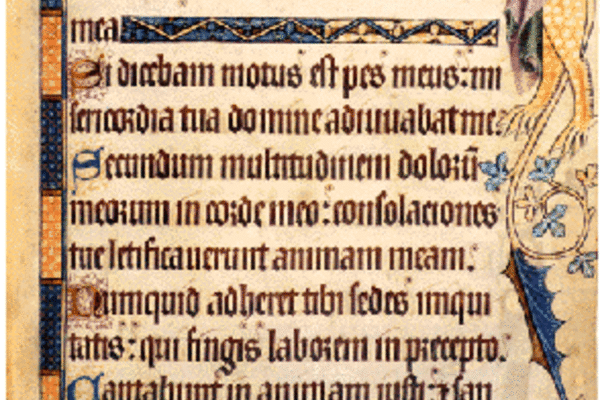 mea
Si dicebam motus est pes meus: mi
sericordia tua domine adiuuabat me.
Secundum multitudinem doloru̅
meorum in corde meo: consolaciones
tue letificauerunt animam meam.
Numquid adheret tibi sedes iniqui
tatis: qui fingis laborem in precepto.
Captabunt in animam iusti: ⁊ san